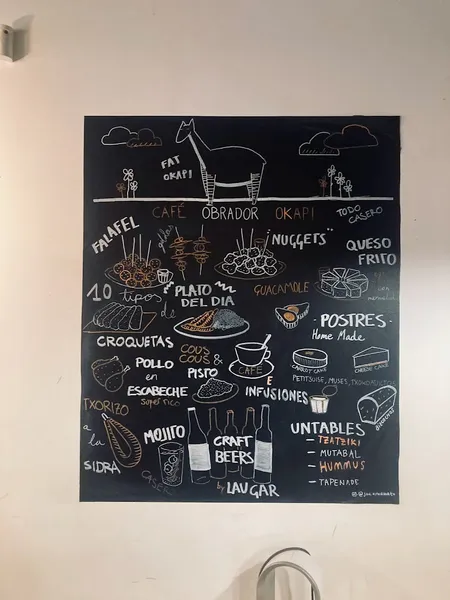 FAT
OKAPI
CAFÉ OBRADOR OKAPI
TODO
CASERO
FALAFEL
"NUGGETS"
QUESO
FRITO
con
10 tipos
de
CROQUETAS
"PLATO
DEL DIA
GUACAMOLE
- POSTRES -
Home Made
COUS
COUS &
PISTO
CAFÉ
E
INFUSIONES
CARROT CAKE
CHEESE CAKE
PETIT SUISE, MUSES,
POLLO
en
ESCABECHE
Super rico
TXORIZO
a la
SIDRA
MOJITO
CASERO
CRAFT
BEERS
by LAUGAR
UNTABLES
- TZATZIKI
- MUTABAL
- HUMMUS
- TAPENADE